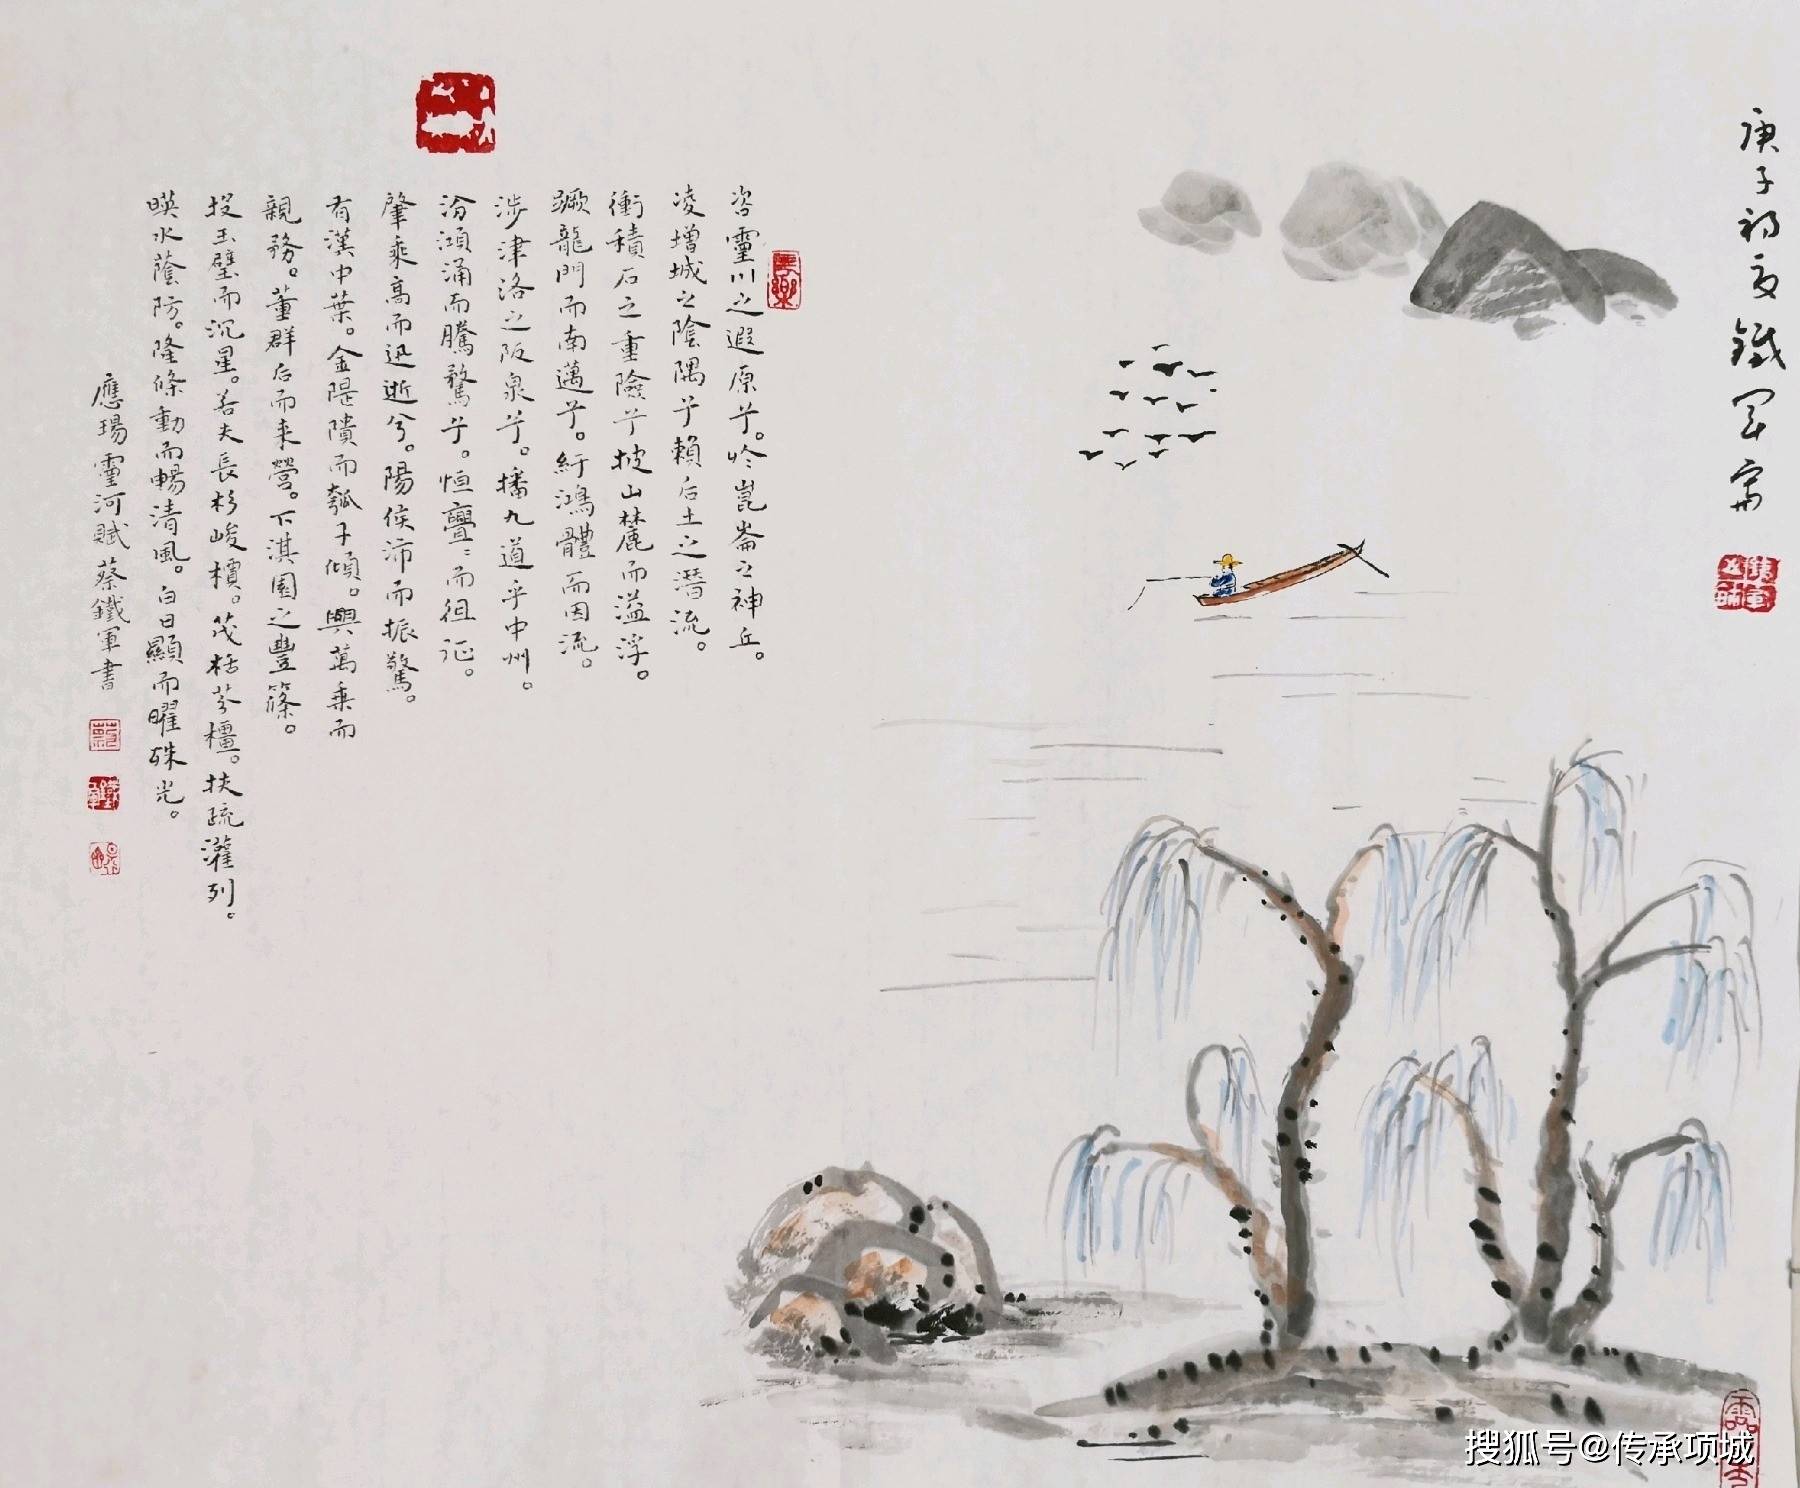 庚子初夏鐵軍寫
咨靈川之遐原兮。於崑崙之神丘。
凌增城之陰隅兮賴后土之潛流。
衝積石之重險兮披山麓而溢浮。
蹶龍門而南邁兮。紆鴻體而因流。
涉津洛之阪泉兮。播九道乎中州。
汾澒涌而騰鶩兮。恒亹〻而徂征。
肇乘高而迅逝兮。陽侯沛而振驚。
有漢中葉。金隄隤而瓠子傾。興萬乘而
親務。董群后而来營。下淇園之豐篠。
投玉璧而沉星。若夫長杉峻檟。茂栝芬橿。扶疏灌列。
暎水蔭防。隆條動而暢清風。白日顯而曜硃光。
應瑒靈河賦蔡鐵軍書
搜狐号@传承项城